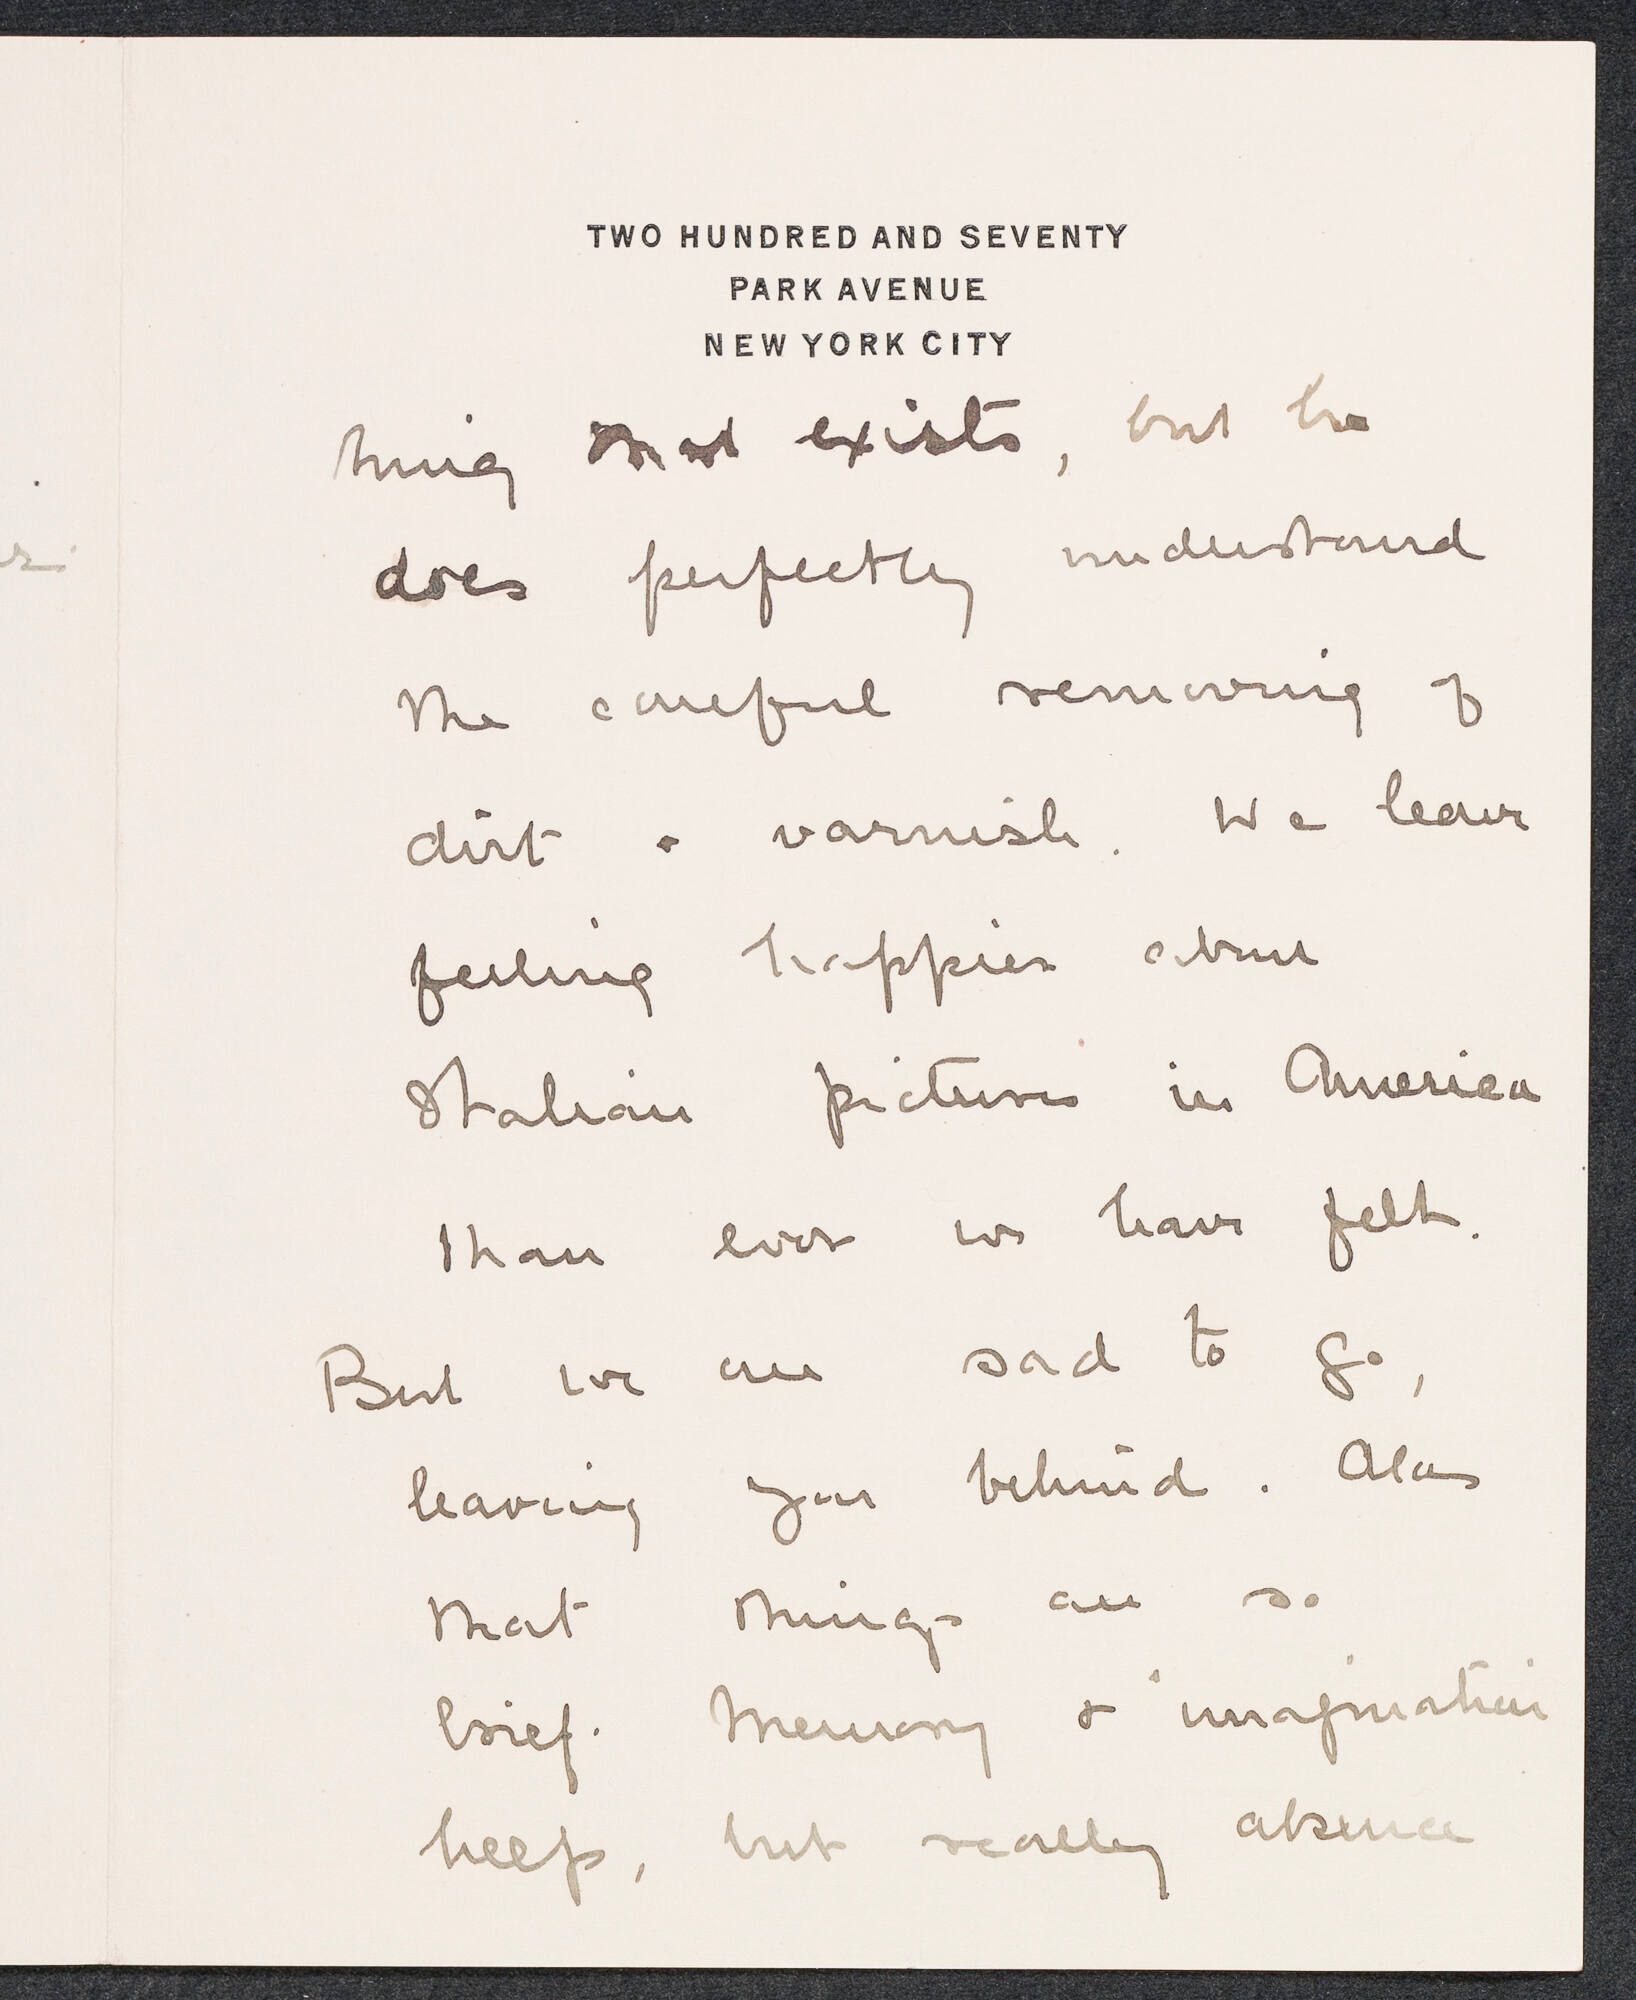 TWO HUNDRED AND SEVENTY
PARK AVENUE
NEW YORK CITY
thing that exists, but he
does perfectly understand
the careful removing of
dirt & varnish. We leave
feeling happier about
Italian pictures in America
than ever we have felt.
But we are sad to go,
leaving you behind. Alas
that things are so
brief. Memory & imagination
help, but really absence